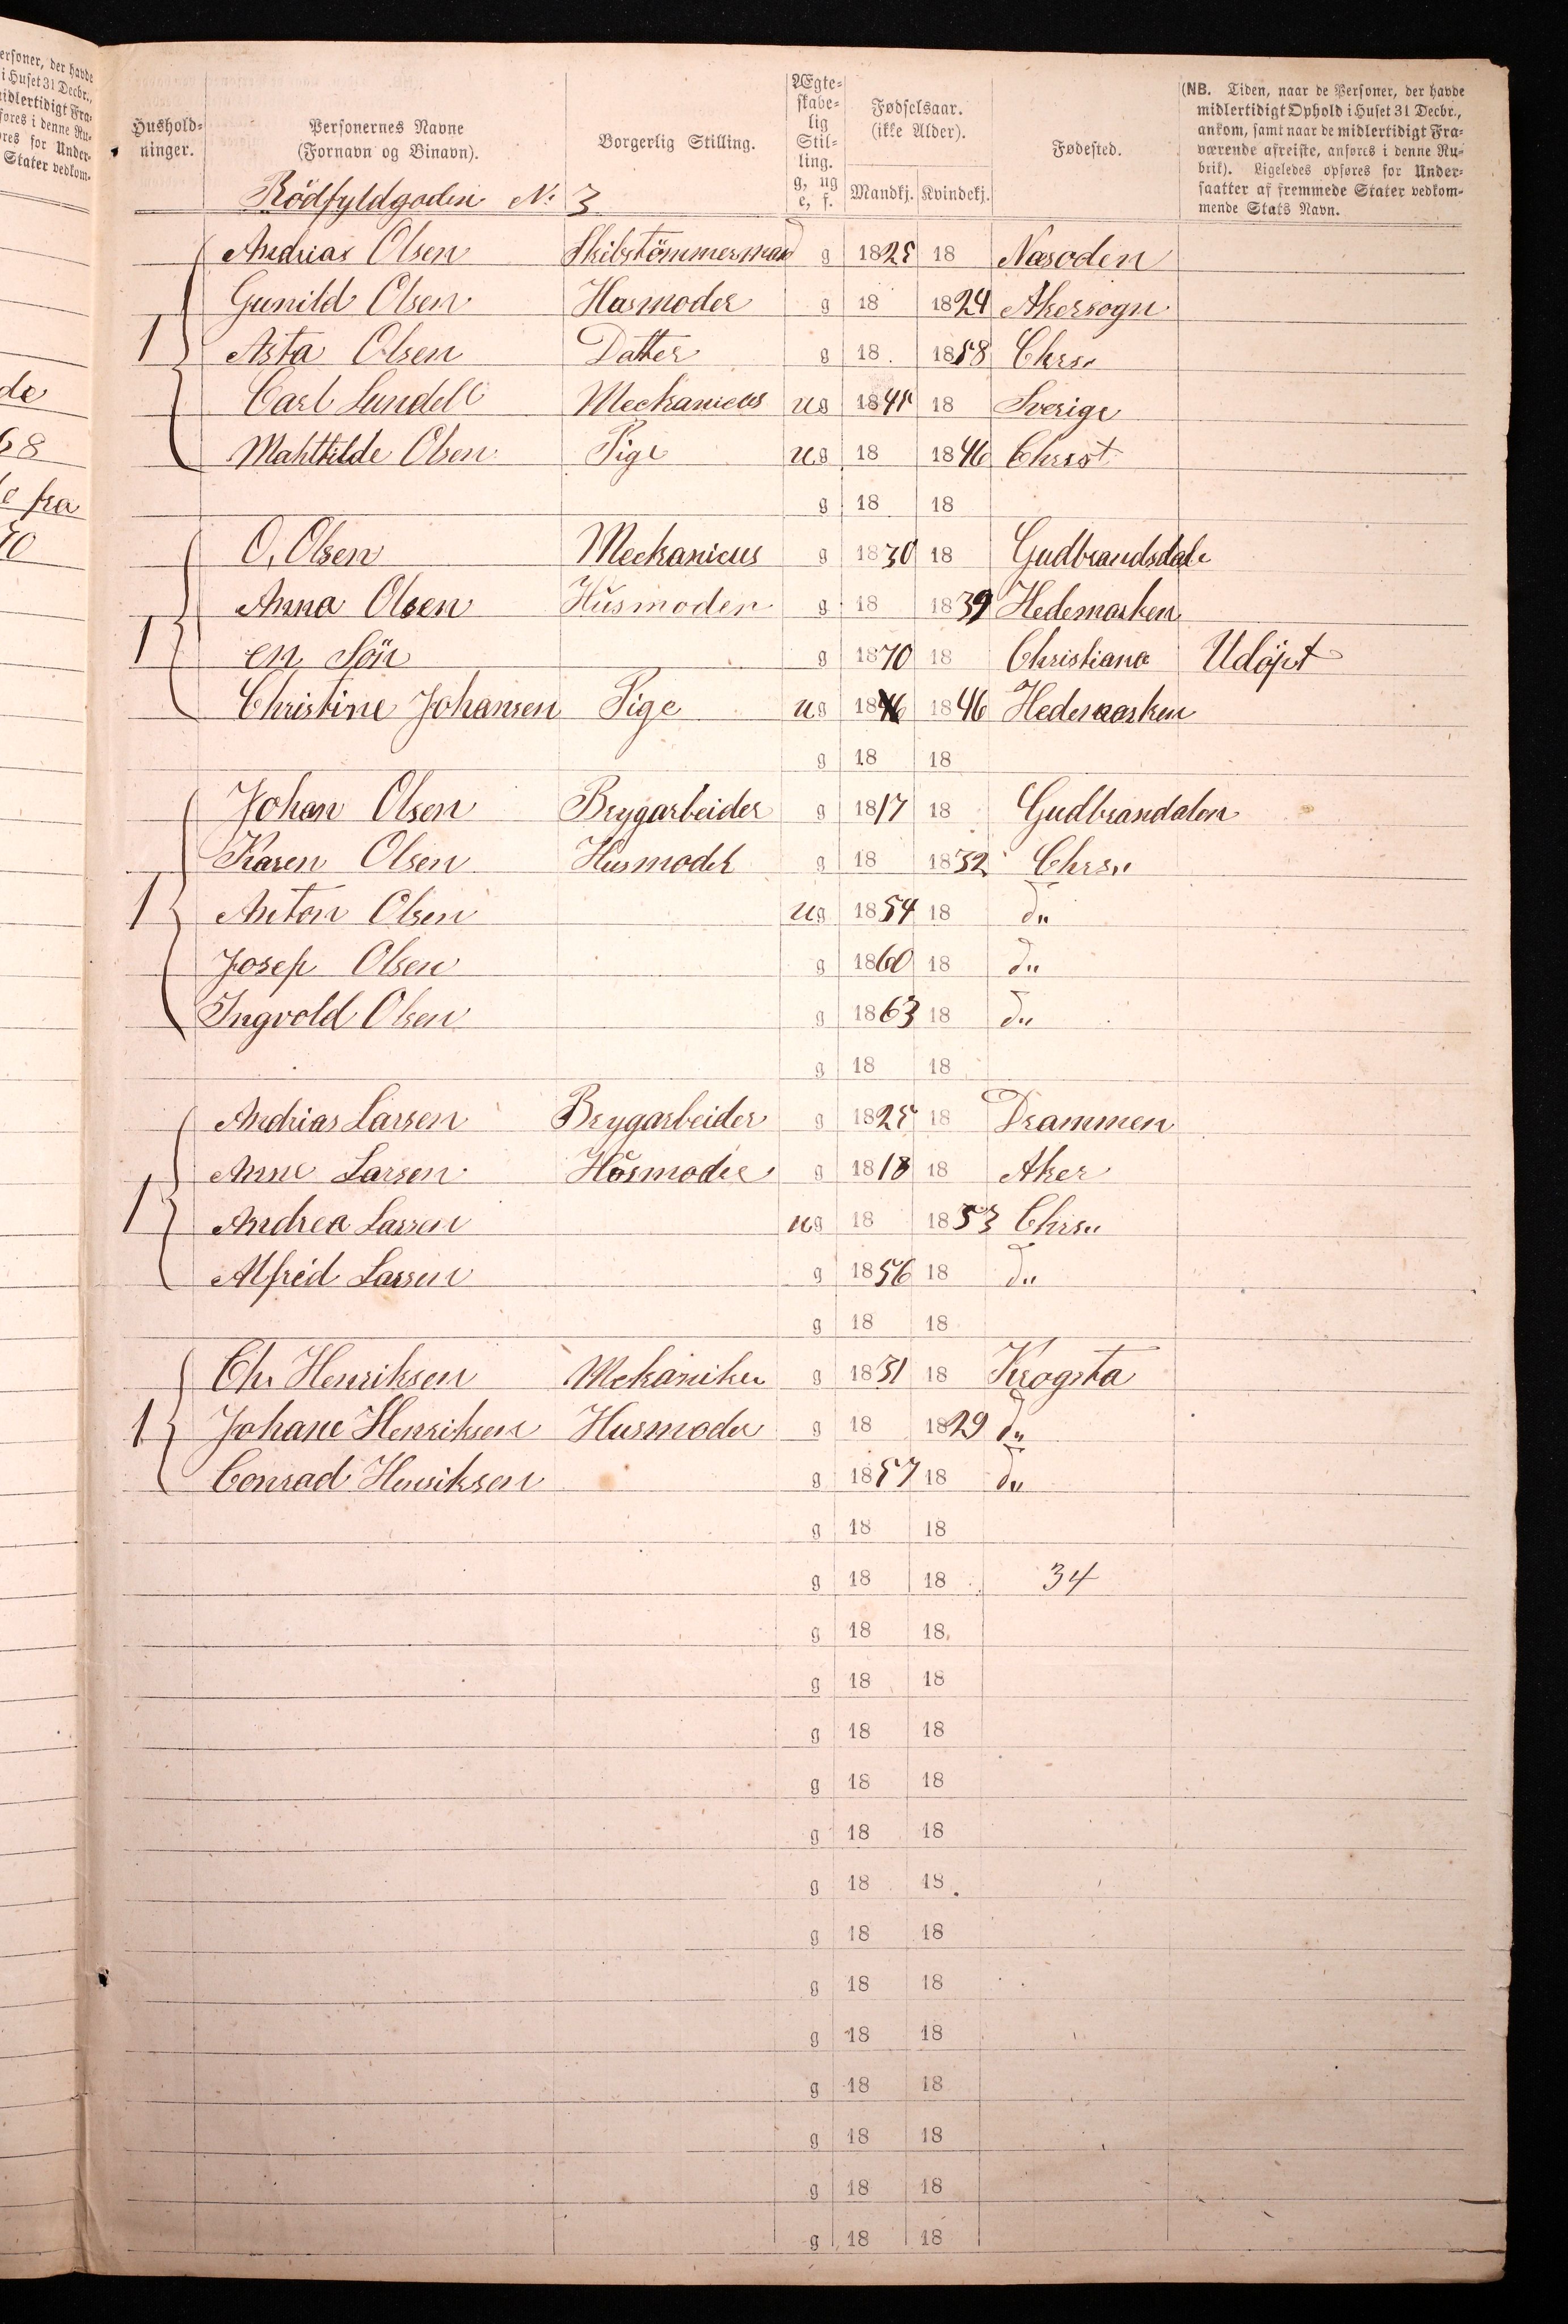 ersoner, der havde
i Huset 31 Decbr.,
idlertidigt Fra-
føres i denne Ru-
res for Under-
Stater vedkom-
de
68
fra
70
Hushold-
ninger.
Personernes Navne
(Fornavn og Binavn).
Borgerlig Stilling.
Ægte-
skabe-
lig
Stil-
ling.
g, ug
e, f.
Fødselsaar.
(ikke Alder).
Mandkj. Kvindekj.
Fødested.
(NB. Tiden, naar de Personer, der havde
midlertidigt Ophold i Huset 31 Decbr.,
ankom, samt naar de midlertidigt Fra-
værende afreiste, anføres i denne Ru-
brik). Ligeledes opføres for Under-
saatter af fremmede Stater vedkom-
mende Stats Navn.
Rödfyldgaden No: 3
Andrias Olsen Skibstömmerman g 1825 18 Næsoden
Gunild Olsen Husmoder g 18 1824 Akersogn
1 Asta Olsen Datter g 18 1858 Chrs..
Carl Lundell Meckanicus ug 1841 18 Sverige
Mahthilde Olsen Pige ug 18 1846 Christ
g 18 18
O, Olsen Meckanicus g 1830 18 Gudbrandsdale
Anna Olsen Husmoder g 18 1839 Hedemarken
1 en Sön g 1870 18 Christiana Udöpt
Christine Johansen Pige ug 1846 1846 Hedemarken
g 18 18
Johan Olsen Brygarbeider g 1817 18 Gudbrandalen
Karen Olsen Husmoder g 18 1832 Chrs..
1 Anton Olsen ug 1854 18 d..
Josep Olsen g 1860 18 d..
Ingvold Olsen g 1863 18 d..
g 18 18
Andrias Larsen Brygarbeider g 1825 18 Drammen
Anne Larsen Husmoder g 1818 18 Aker
1 Andrea Larsen ug 18 1853 Chrs..
Alfred Larsen g 1856 18 d..
g 18 18
Chr Henriksen Mekaniker g 1831 18 Krogsta
1 Johane Henriksen Husmoder g 18 1829 d..
Conrad Henriksen g 1857 18 d..
g 18 18
g 18 18 34
g 18 18
g 18 18
g 18 18
g 18 18
g 18 18
g 18 18
g 18 18
g 18 18
g 18 18
g 18 18
g 18 18
g 18 18
g 18 18